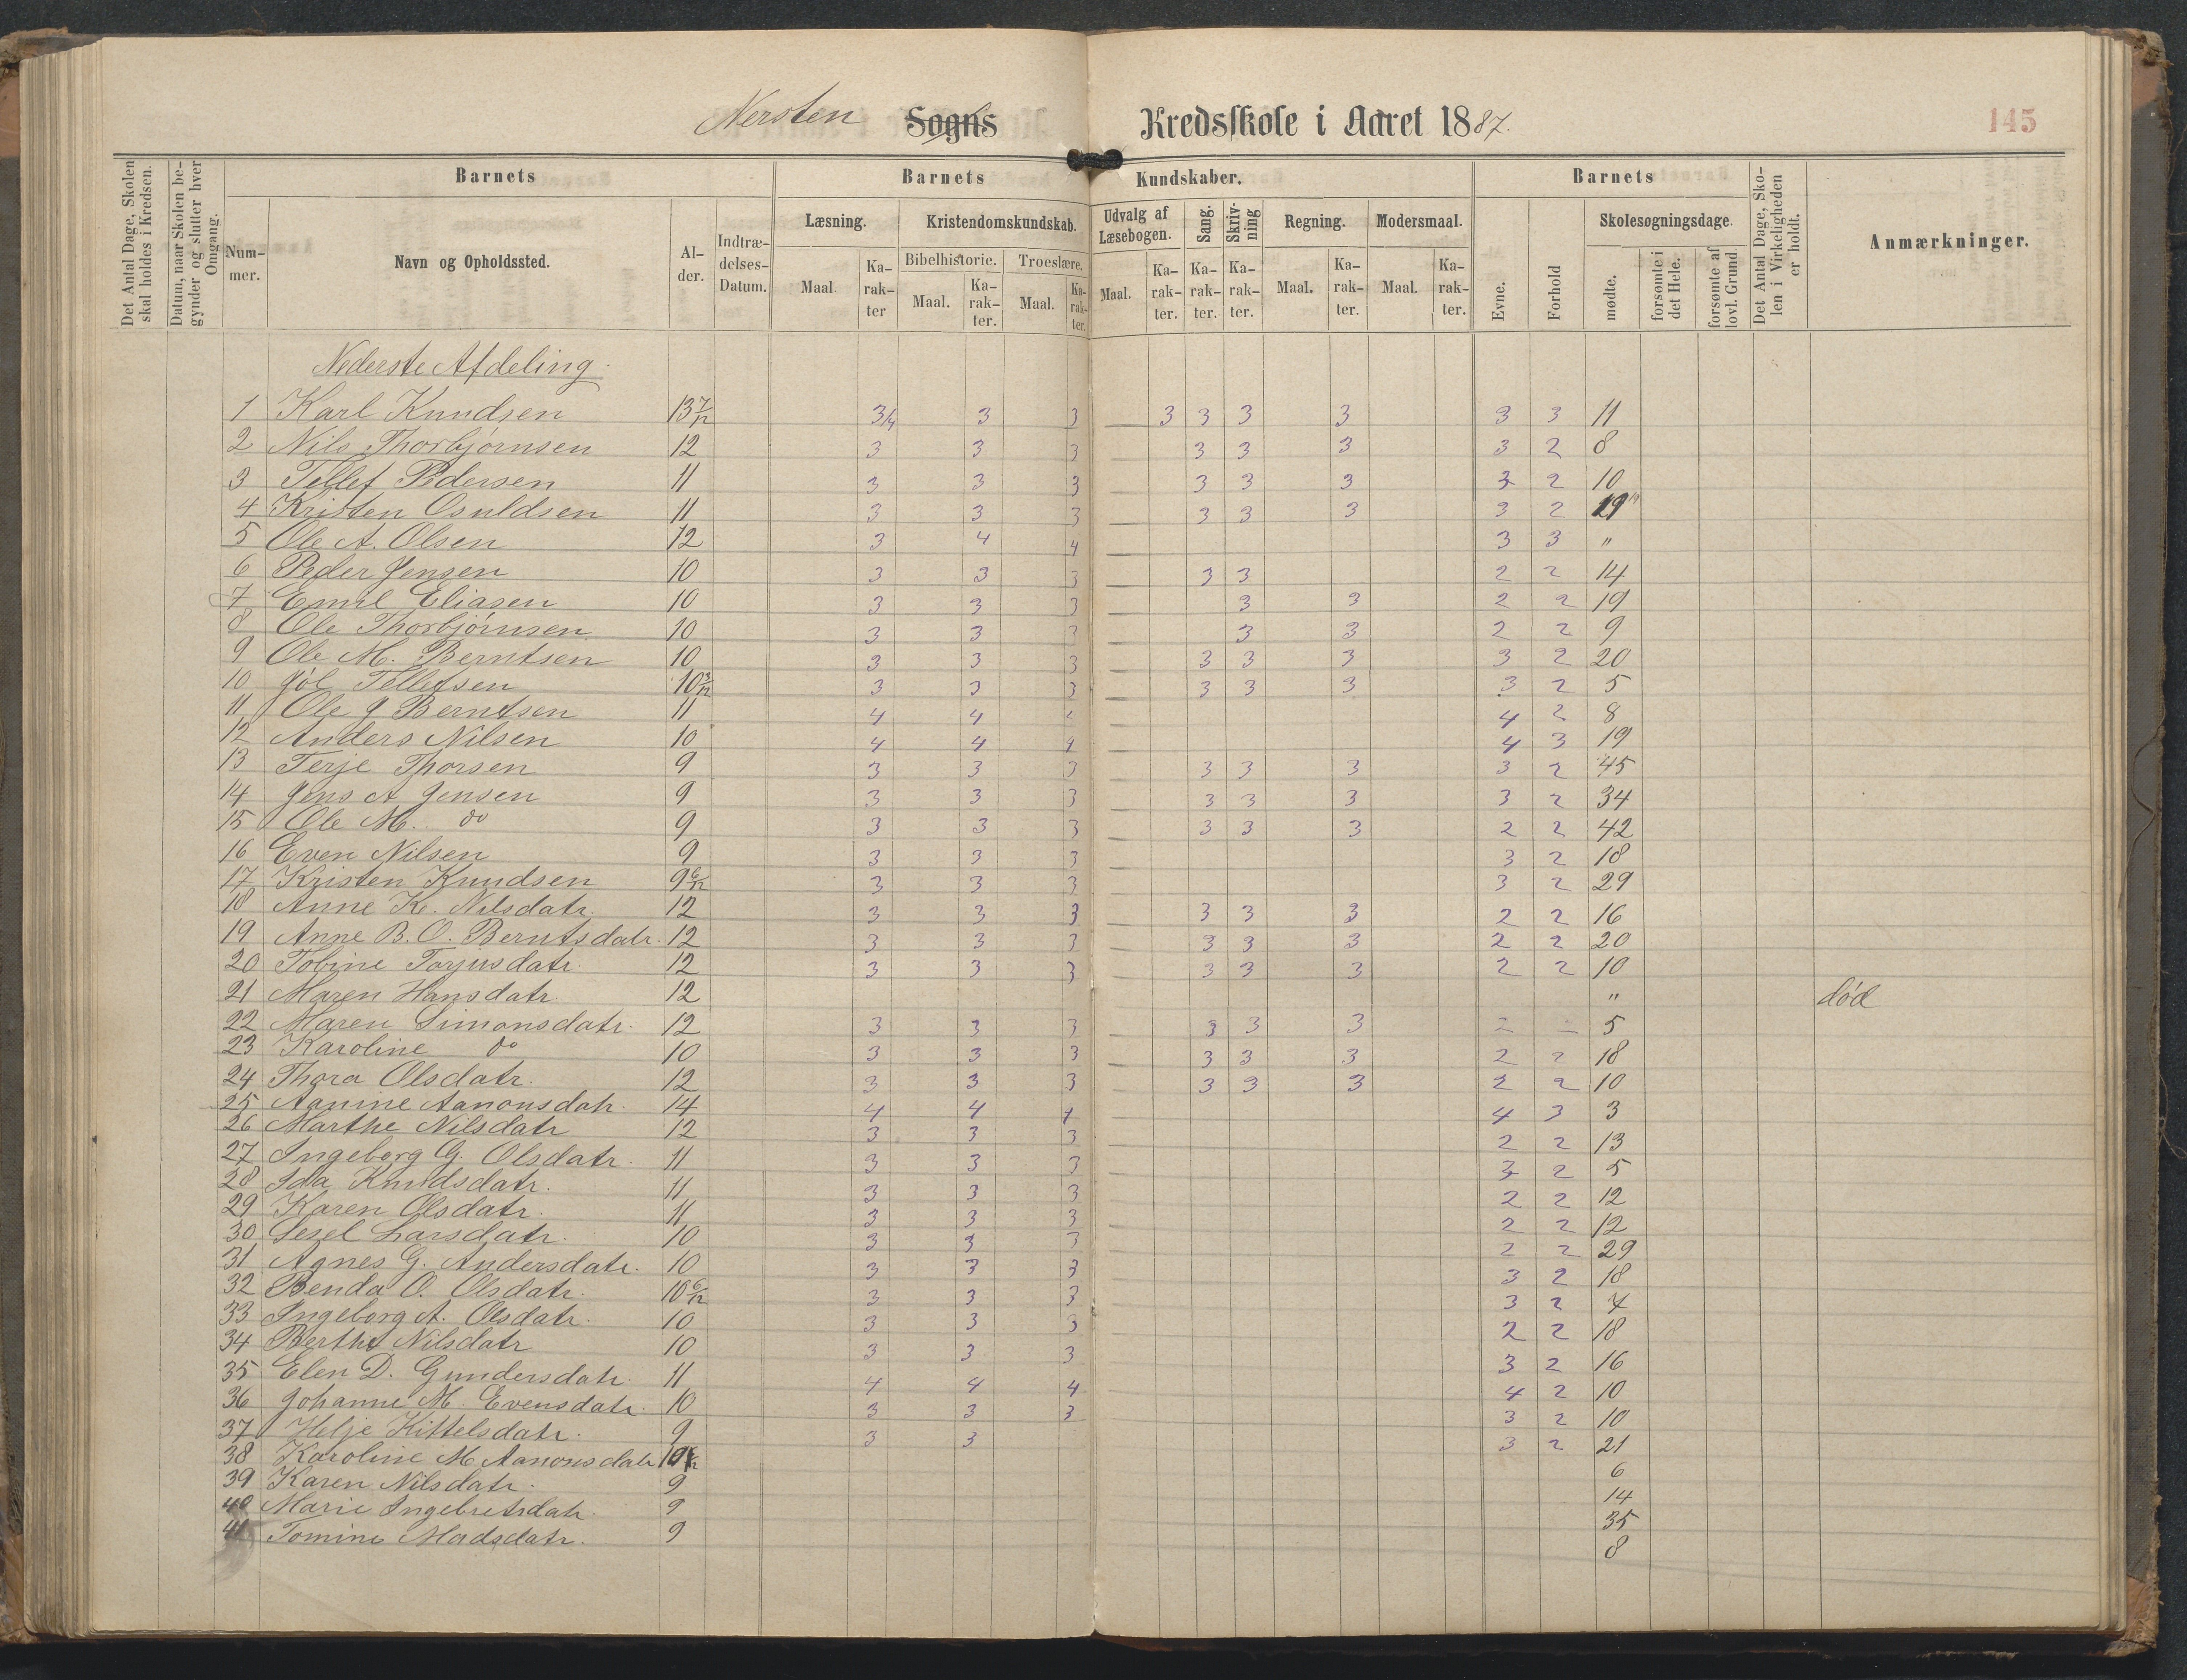 Nersten Sogns Kredsskole i Aaret 1887.
145
Det Antal Dage, Skolen skal holdes i Kredsen.
Datum, naar Skolen begynder og slutter hver Omgang.
Barnets
Nummer.
Navn og Opholdssted.
Alder.
Indtrædelses-Datum.
Barnets Kundskaber.
Læsning.
Maal
Karakter
Kristendomskundskab.
Bibelhistorie.
Maal.
Karakter.
Troeslære.
Maal.
Karakter.
Udvalg af Læsebogen.
Maal.
Karakter.
Sang.
Karakter.
Skrivning
Karakter.
Regning.
Maal.
Karakter.
Modersmaal.
Maal.
Karakter.
Barnets
Evne.
Forhold
Skolesøgningsdage.
mødte.
forsømte i det Hele.
forsømte af lovl. Grund
Det Antal Dage, Skolen i Virkeligheden er holdt.
Anmærkninger.
Nederste Afdeling.
1 Karl Knudsen 13 7/12 3/4 3 3 3 3 3 3 3 3 11
2 Nils Thorbjørnsen 12 3 3 3 3 3 3 3 2 8
3 Tellef Pedersen 11 3 3 3 3 3 3 3 2 10
4 Kristen Osuldsen 11 3 3 3 3 3 3 3 2 19
5 Ole A. Olsen 12 3 4 4 3 3 "
6 Peder Jensen 10 3 3 3 3 3 2 2 14
7 Emil Eliasen 10 3 3 3 3 3 2 2 19
8 Ole Thorbjørnsen 10 3 3 3 3 3 2 2 9
9 Ole M. Berntsen 10 3 3 3 3 3 3 3 2 20
10 Jøl Tellefsen 10 3/12 3 3 3 3 3 3 3 2 5
11 Ole J Berntsen 11 4 4 4 4 2 8
12 Anders Nilsen 10 4 4 4 4 3 19
13 Terje Thorsen 9 3 3 3 3 3 3 3 2 45
14 Jens A Jensen 9 3 3 3 3 3 3 3 2 34
15 Ole M. do 9 3 3 3 3 3 3 2 2 42
16 Even Nilsen 9 3 3 3 3 2 18
17 Kristen Knudsen 9 6/12 3 3 3 3 2 29
18 Anne K. Nilsdatr. 12 3 3 3 3 3 3 2 2 16
19 Anne B. O. Berntsdatr. 12 3 3 3 3 3 3 2 2 20
20 Tobine Torjusdatr. 12 3 3 3 3 3 3 2 2 10
21 Maren Hansdatr. 12 " død
22 Maren Simonsdatr. 12 3 3 3 3 3 3 2 2 5
23 Karoline do 10 3 3 3 3 3 3 2 2 18
24 Thora Olsdatr. 12 3 3 3 3 3 3 2 2 10
25 Aanine Aanonsdatr. 14 4 4 4 4 3 3
26 Marthe Nilsdatr 12 3 3 3 2 2 13
27 Ingeborg G. Olsdatr. 11 3 3 3 3 2 5
28 Ida Knudsdatr. 11 3 3 3 2 2 12
29 Karen Olsdatr. 11 3 3 3 2 2 12
30 Sesel Larsdatr. 10 3 3 3 2 2 29
31 Agnes G. Andersdatr. 10 3 3 3 3 2 18
32 Benda O. Olsdatr. 10 6/12 3 3 3 3 2
33 Ingeborg A. Olsdatr. 10 3 3 3 2 2 18
34 Berthe Nilsdatr 10 3 3 3 3 2 16
35 Elen D. Gundersdatr. 11 4 4 4 4 2 10
36 Johanne M. Evensdatr. 10 3 3 3 3 2 10
37 Helje Kittelsdatr. 9 3 3 3 2 21
38 Karoline M Aanonsdatr 6
39 Karen Nilsdatr. 9 14
40 Marie Ingebretsdatr. 9 35
41 Tomine Madsdatr. 9 8